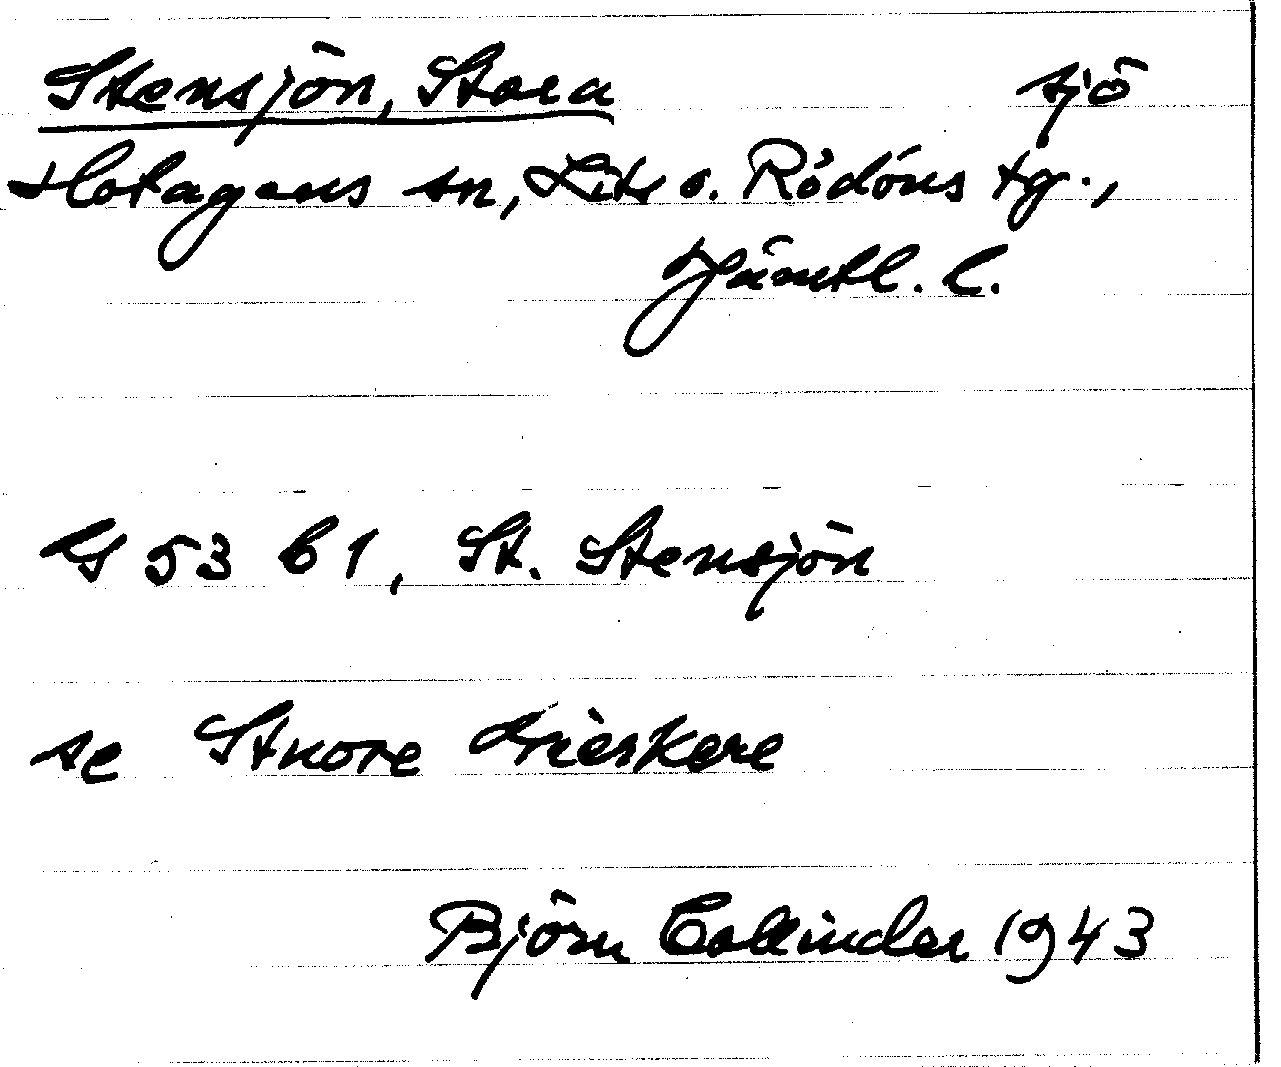 Stensjön, Stora sjö
Hotagens sn, Lits o. Rödöns tg.,
Jämtl. l.
53 b 1, St. Stensjön
se Stuore
Björn Collinder 1943